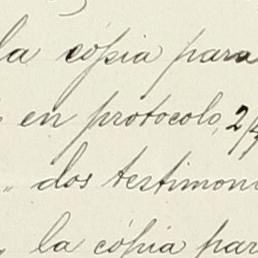 la cópia para
en protocolo, 2/
" dos testimoni
la cópia par